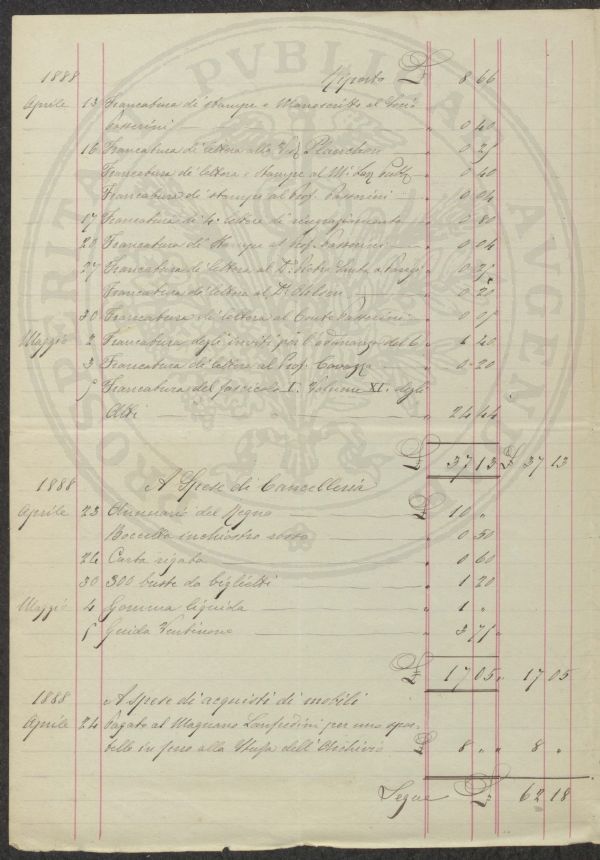 1888 Riporto £ 8 66
Aprile 13 Francatura di stampe e Manoscritto al Socio
Passerini " 0 40
16 Francatura di lettera alla Ved. Planchon " 0 25
Francatura di lettera e stampe al " 0 40
Francatura di stampe al Prof. Passerini " 0 04
17 Francatura di 4 lettere di ringraziamento " 0 80
20 Francatura di stampe al Prof. Passerini " 0 04
27 Francatura di lettera al Dr. Pietro a Parigi " 0 25
Francatura di lettera al Dr " 0 20
30 Francatura di lettera al Conte Passerini " 0 05
Maggio 2 Francatura degli inviti per l'adunanza del 6 " 1 40
3 Francatura di lettera al Prof. Cavazza " 0 20
5 Francatura del fascicolo I. Volume XI. degli
Atti " 24 44
£ 37 13 £ 37 13
1888 A Spese di Cancelleria
Aprile 23 Annuario del Regno £ 10 "
Boccetta inchiostro rosso " 0 50
26 Carta rigata " 0 60
30 300 buste da biglietti " 1 20
Maggio 4 Gomma liquida " 1 "
5 Guida " 3 75
£ 17 05 " 17 05
1888 A spese di acquisti di mobili
Aprile 24 Pagato al Magnano Lanfredini per uno spor-
tello in ferro alla Stufa dell'Archivio £ 8 " " 8 "
Segue £ 62 18
PROSPERITATI PVBLICAE AVGENDAE